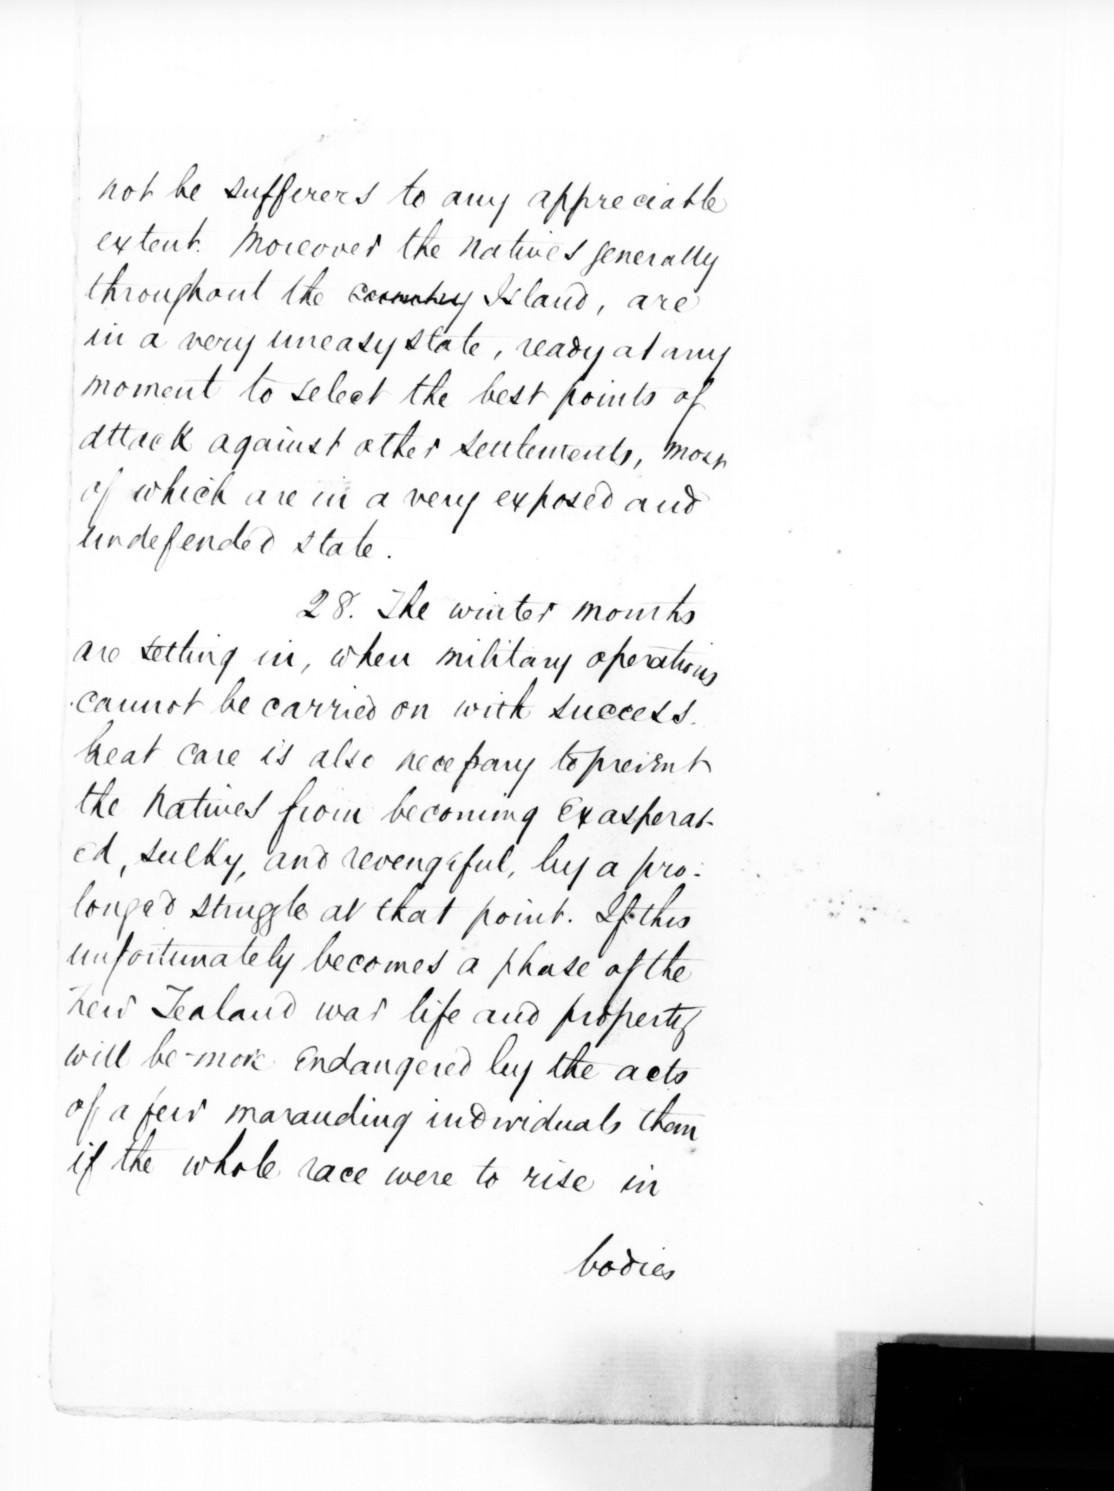 not be sufferers to any appreciable
extent. Moreover the Natives generally
throughout the country Island, are
in a very uneasy state, ready at any
moment to select the best points of
attack against other settlements, most
of which are in a very exposed and
undefended state.
28. The winter months
are setting in, when military operations
cannot be carried on with success.
Great care is also necessary to prevent
the Natives from becoming Exasperat-
ed, sulky, and revengeful, by a pro:
longed struggle at that point. If this
unfortunately becomes a phase of the
New Zealand war life and property
will be more Endangered by the acts
of a few marauding individuals than
if the whole race were to rise in
bodies